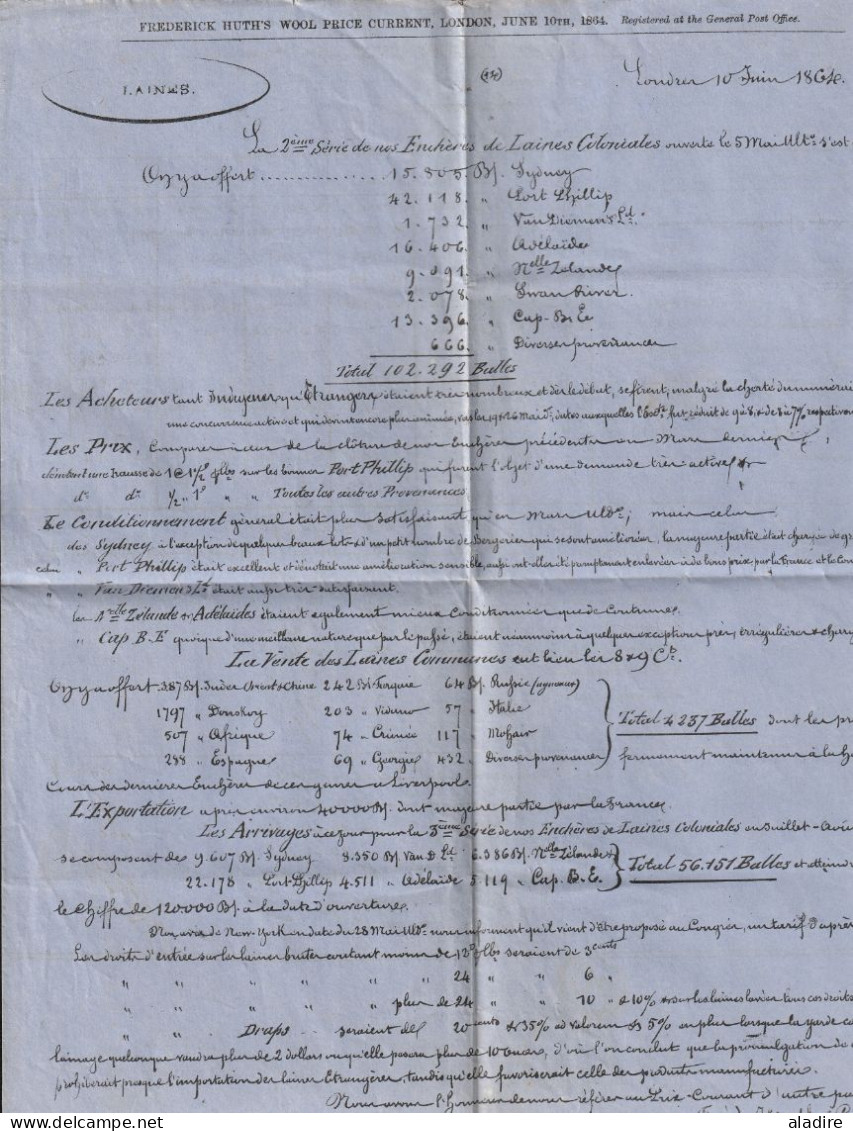 FREDERICK HUTH'S WOOL PRICE CURRENT, LONDON, JUNE 10TH, 1864. Registered at the General Post Office.
LAINES.
Londres 10 Juin 1864.
La 2ème Série de nos Enchères de Laines Coloniales ouverte le 5 Mai Ulto s'est
On y a offert .................. 15.805. Bs. Sydney
42.118. " Port Phillip
1.732. " Van Diemen's Ld.
16.406. " Adélaïde
9.091. " Nelle Zélande
2.078. " Swan River.
13.396. " Cap. B. Ee
666. " Diverses provenances
Total 102.292 Balles
Les Acheteurs tant Indigènes qu'Etrangers étaient très nombreux et dès le début, se firent, malgré la cherté du numérair
une concurrence active et qui devint encore plus animée, vers les 19 & 26 Mai, dates auxquelles l'Esc fut réduit de 9 à 8, & de 8 à 7% respectivem
Les Prix, comparés à ceux de la clôture de nos Enchères précédentes en Mars dernier,
dénotent une hausse de 1 @ 1½ sur les bonnes Port Phillip qui furent l'objet d'une demande très active &
do do ½ " 1 " " Toutes les autres Provenances
Le Conditionnement général était plus satisfaisant qu'en Mars Ulto; mais celui
des Sydney à l'exception de quelques beaux lots & d'un petit nombre de Bergeries qui se sont améliorées, la majeure partie était chargée de
celui " Port Phillip était excellent et dénotait une amélioration sensible, aussi ont elles été promptement enlevées à de bons prix, par la France et le
" " Van Diemens Ld était aussi très satisfaisant.
les Nelle Zélande & Adélaïdes étaient également mieux conditionnées que de coutume.
" Cap B. Ee quoique d'une meilleure nature que par le passé, étaient néanmoins à quelques exceptions près, irrégulières &
La Vente des Laines Communes eut lieu les 8 & 9 Ct.
On y a offert 387 Bs. Indes Orient & Chine 242 Bs Turquie 64 Bs. Russie (agneaux)
1797 " Donskoy 203 " 57 " Italie
507 " Afrique 74 " Crimée 117 " Mohair
288 " Espagne 69 " Géorgie 432 " Diverses provenances
Total 4237 Balles dont les
fermement maintenus à la
Cours des dernières Enchères de ce genre à Liverpool.
L'Exportation a pris environ 40000 Bs. dont majeure partie par la France
Les Arrivages à ce jour pour la 3ème Série de nos Enchères de Laines Coloniales en Juillet - Août
se composent de 9.607 Bs. Sydney 8.350 Bs. Van D. Ld. 6.386 Bs. Nelle Zélande
22.178 " Port Phillip 4.511 " Adélaïde 5.119 " Cap. B. E.
Total 56.151 Balles et
le chiffre de 120000 Bs. à la date d'ouverture.
Nos avis de New-York en date du 28 Mai Ulto. nous informent qu'il vient d'être proposé au Congrès, un tarif d'après
Les droits d'entrée sur les laines brutes coutant moins de 12 seraient de 3 cents
" " " " " 24 " " 6 "
" " " " plus de 24 " " 10 " & 10% & sur les laines lavées tous ces droits
" " Draps .. seraient de 20 cents & 35% ad valorem & 5% en plus lorsque la
lainage quelconque vaudra plus de 2 dollars ou qu'elle pesera plus de 10 onces, d'où l'on conclut que la promulgation de
prohiberait presque l'importation des laines Etrangères, tandis qu'elle favoriserait celle des produits manufacturés.
Nous avons l'honneur de vous référer au Prix-Courant d'autre
aladire
www.delcampe.net